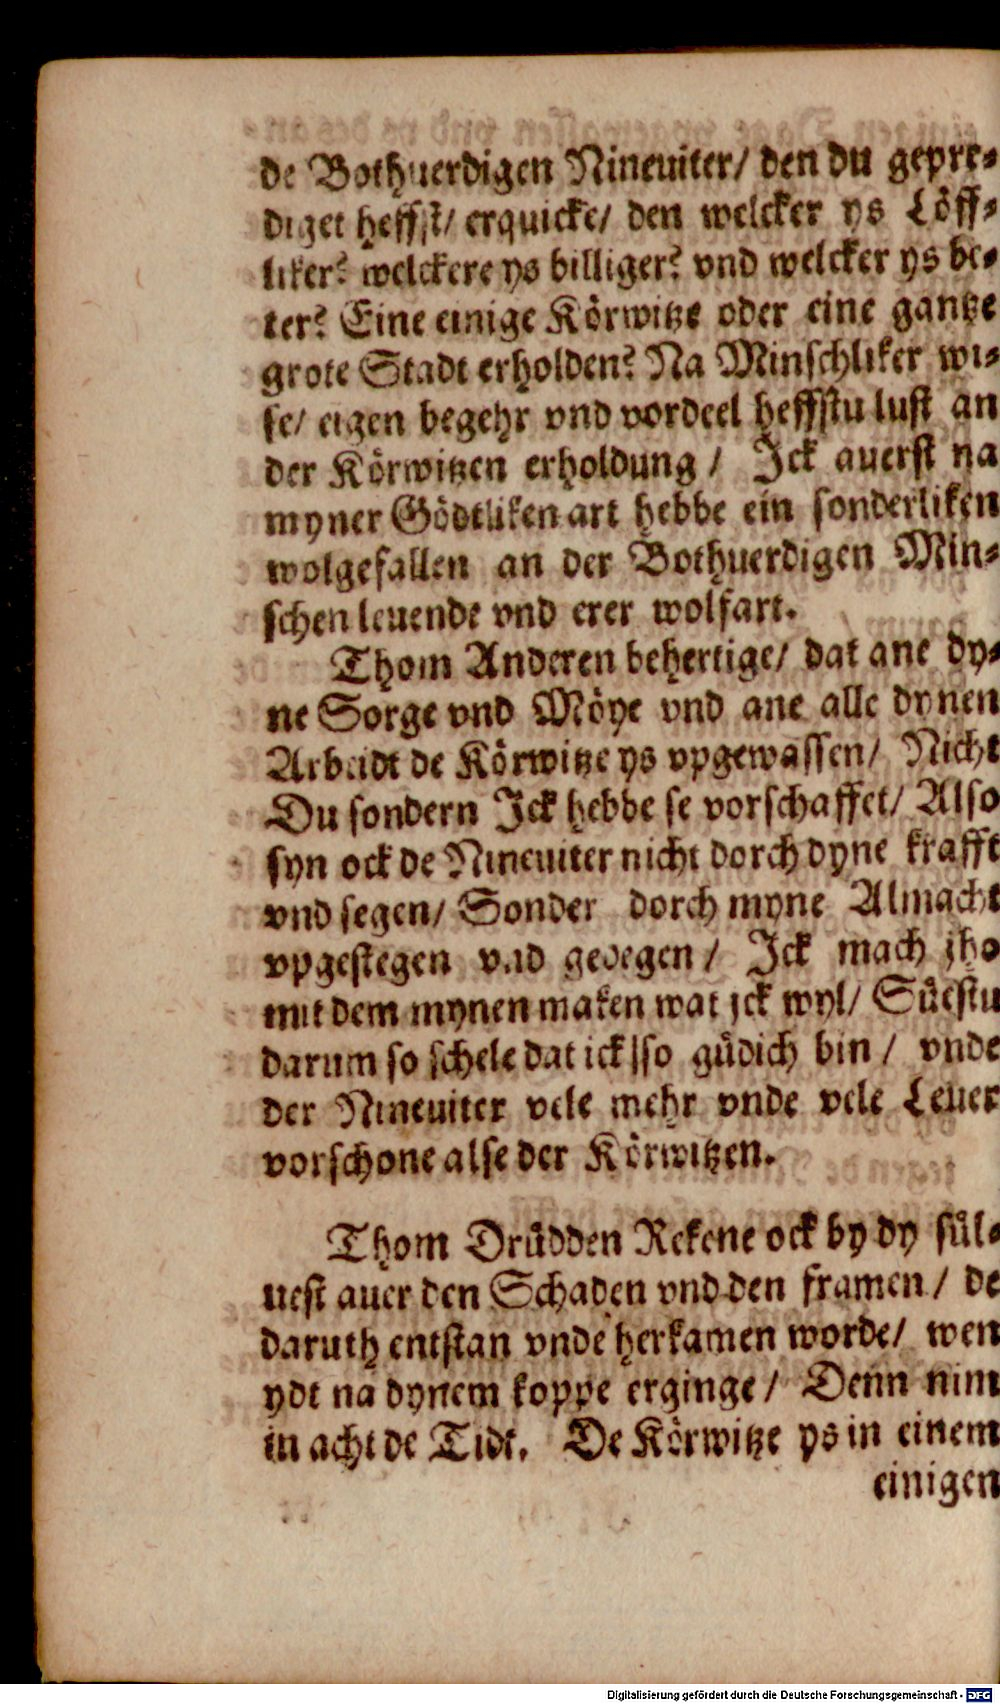 de Bothuerdigen Nineuiter/ den du gepre-
diget heffst/ erquicke/ den welcker ys Löff-
liker? welckere ys billiger? vnd welcker ys be-
ter? Eine einige Körwitze oder eine gantze
grote Stadt erholden? Na Minschliker wi-
se/ eigen begehr vnd vordeel heffstu lust an
der Körwitzen erholdung / Jck auerst na
myner Gödtliken art hebbe ein sonderliken
wolgefallen an der Bothuerdigen Min-
schen leuende vnd erer wolfart.
Thom Anderen behertige/ dat ane dy-
ne Sorge vnd Möye vnd ane alle dynen
Arbeidt de Körwitze ys vpgewassen/ Nicht
Du sondern Jck hebbe se vorschaffet/ Also
syn ock de Nineuiter nicht dorch dyne krafft
vnd segen/ Sonder dorch myne Almacht
vpgestegen vnd gedegen / Jck mach jho
mit dem mynen maken wat jck wyl/ Süestu
darum so schele dat ick sso güdich bin / vnde
der Nineuiter vele mehr vnde vele Leuer
vorschone alse der Körwitzen.
Thom Drüdden Rekene ock by dy sül-
uest auer den Schaden vnd den framen / de
daruth entstan vnde herkamen worde/ wen
ydt na dynem koppe erginge / Denn nim
in acht de Tidt. De Körwitze ys in einem
einigen
Digitalisierung gefördert durch die Deutsche Forschungsgemeinschaft - DFG